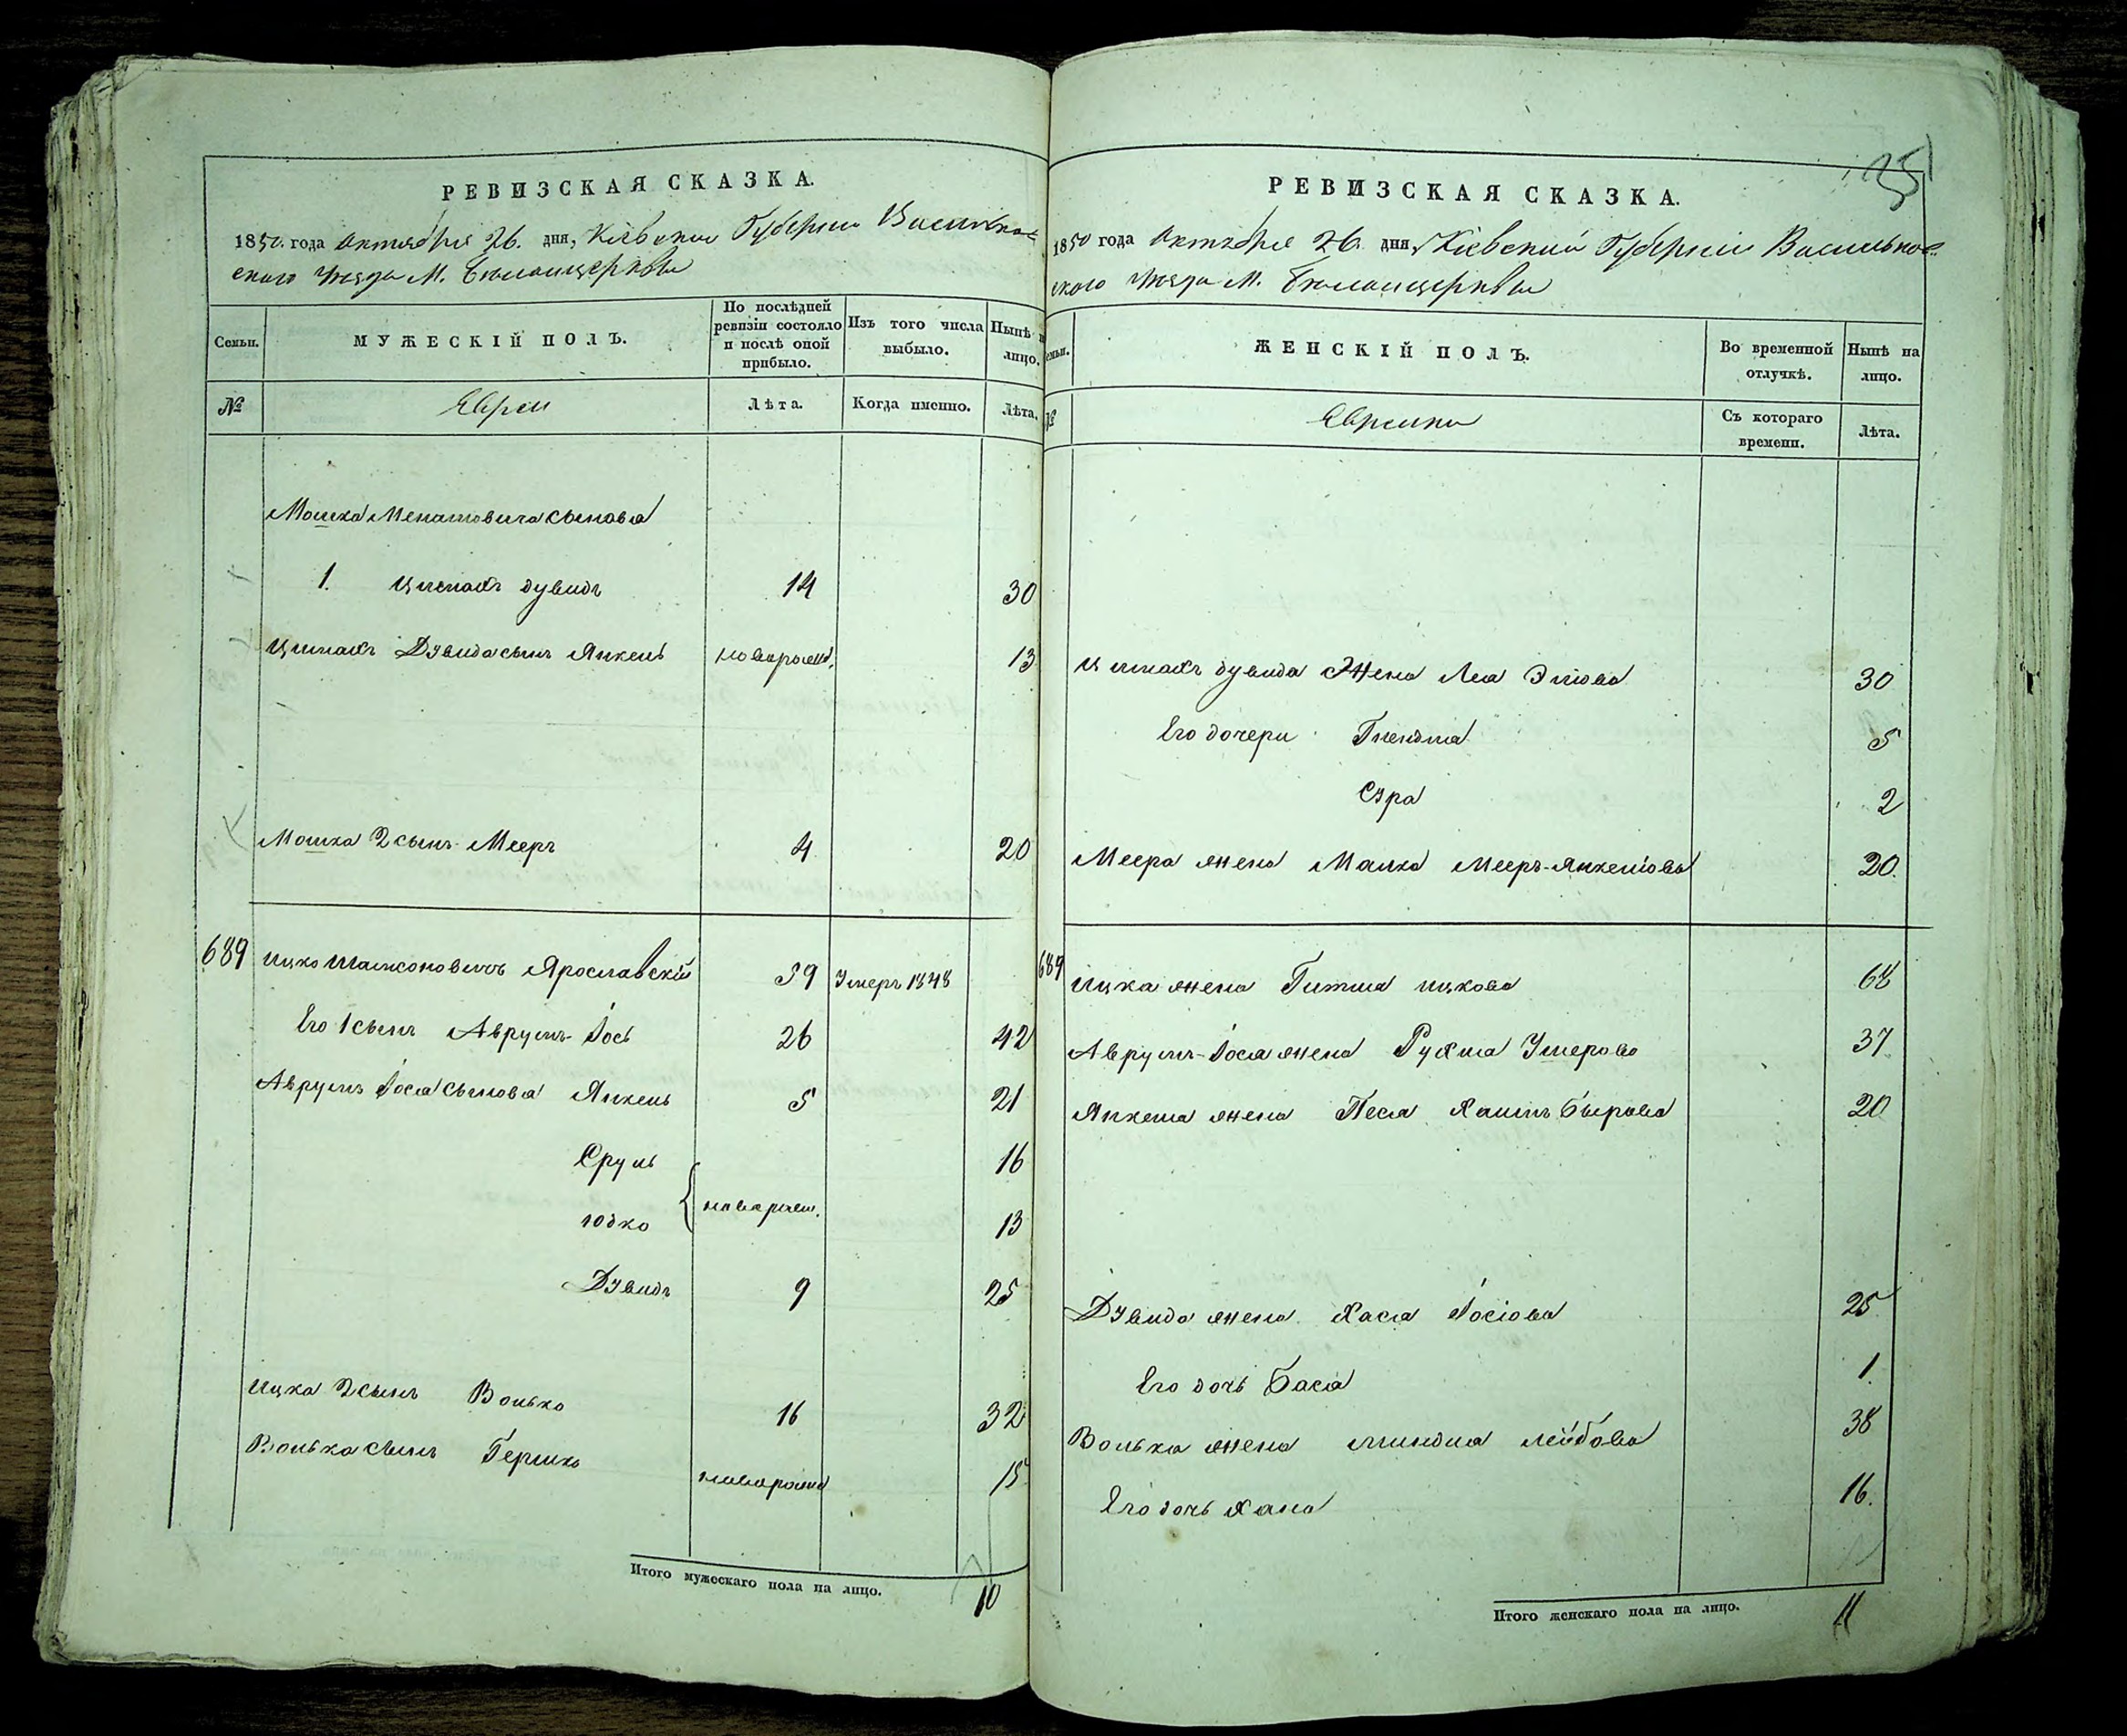 РЕВИЗСКАЯ СКАЗКА.
1850. года Октября 26. дня, Кіевской Губерніи Васильков-
скаго Уезда М. Белоицеркви
Семьи.
МУЖЕСКІЙ ПОЛЪ.
По послѣдней ревизіи состояло и послѣ оной прибыло.
Изъ того числа выбыло.
Нынѣ н лицо.
№
Евреи
Лѣта.
Когда именно.
Лѣта.
Мошка Менатовича сыновья
1. Ицхакъ дувидъ 14 30
Ицхакъ Дувида сынъ Янкель новорожд. 13
Мошка 2 сынъ Мееръ 4 20
689 Ицко Шамсоновичъ Ярославскій 59 Умеръ 1848
Его 1 сынъ Аврумъ-Іось 26 42
Аврумъ Іося сыновья Янкель 5 21
Сруль 16
Юдко новорож. 13
Дувидъ 9 25
Ицка 2 сынъ Волько 16 32
Волька сынъ Гершко новорожд 15
Итого мужескаго пола на лицо. 10
35
РЕВИЗСКАЯ СКАЗКА.
1850 года Октября 26. дня, Кіевской Губерніи Васильков-
скаго Уезда М. Белоицеркви
емьи.
ЖЕНСКІЙ ПОЛЪ.
Во временной отлучкѣ.
Нынѣ на лицо.
№
Еврейки
Съ котораго времени.
Лѣта.
Ицхакъ дувида Жена Лея 30
Его дочери Гнендля 5
Сура 2
Меера жена Малка Мееръ-Янкеліова 20.
689 Ицка жена Гитля ицкова 68
Аврумъ-Іося жена Рухля Умерова 37
Янкеля жена Песя Хаимъ Бырова 20
Дувида жена Хася Іосіова 25
Его дочь Бася 1.
Волька жена миндля лейбова 38
Его дочь Хана 16.
Итого женскаго пола на лицо. 11